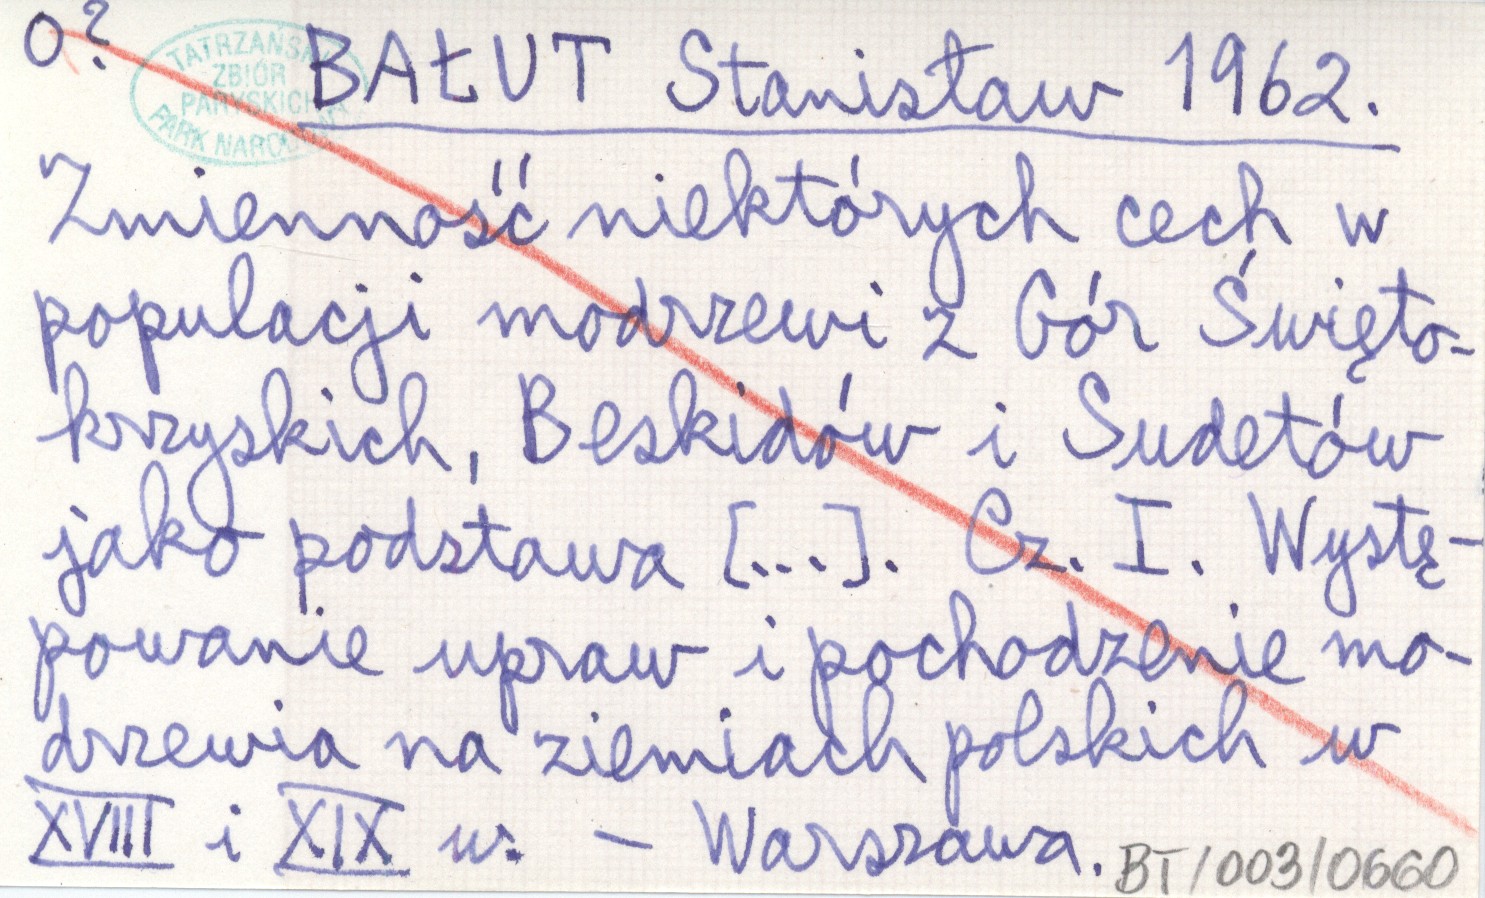 0?
TATRZAŃSKI
ZBIÓR
PARYSKICH
PARK NARODOWY
BAŁUT Stanisław 1962.
Zmienność niektórych cech w
populacji modrzewi z Gór Święto-
krzyskich, Beskidów i Sudetów
jako podstawa [...]. Cz. I. Wystę-
powanie upraw i pochodzenie mo-
drzewia na ziemiach polskich w
XVIII i XIX w. – Warszawa.
BT/003/0660